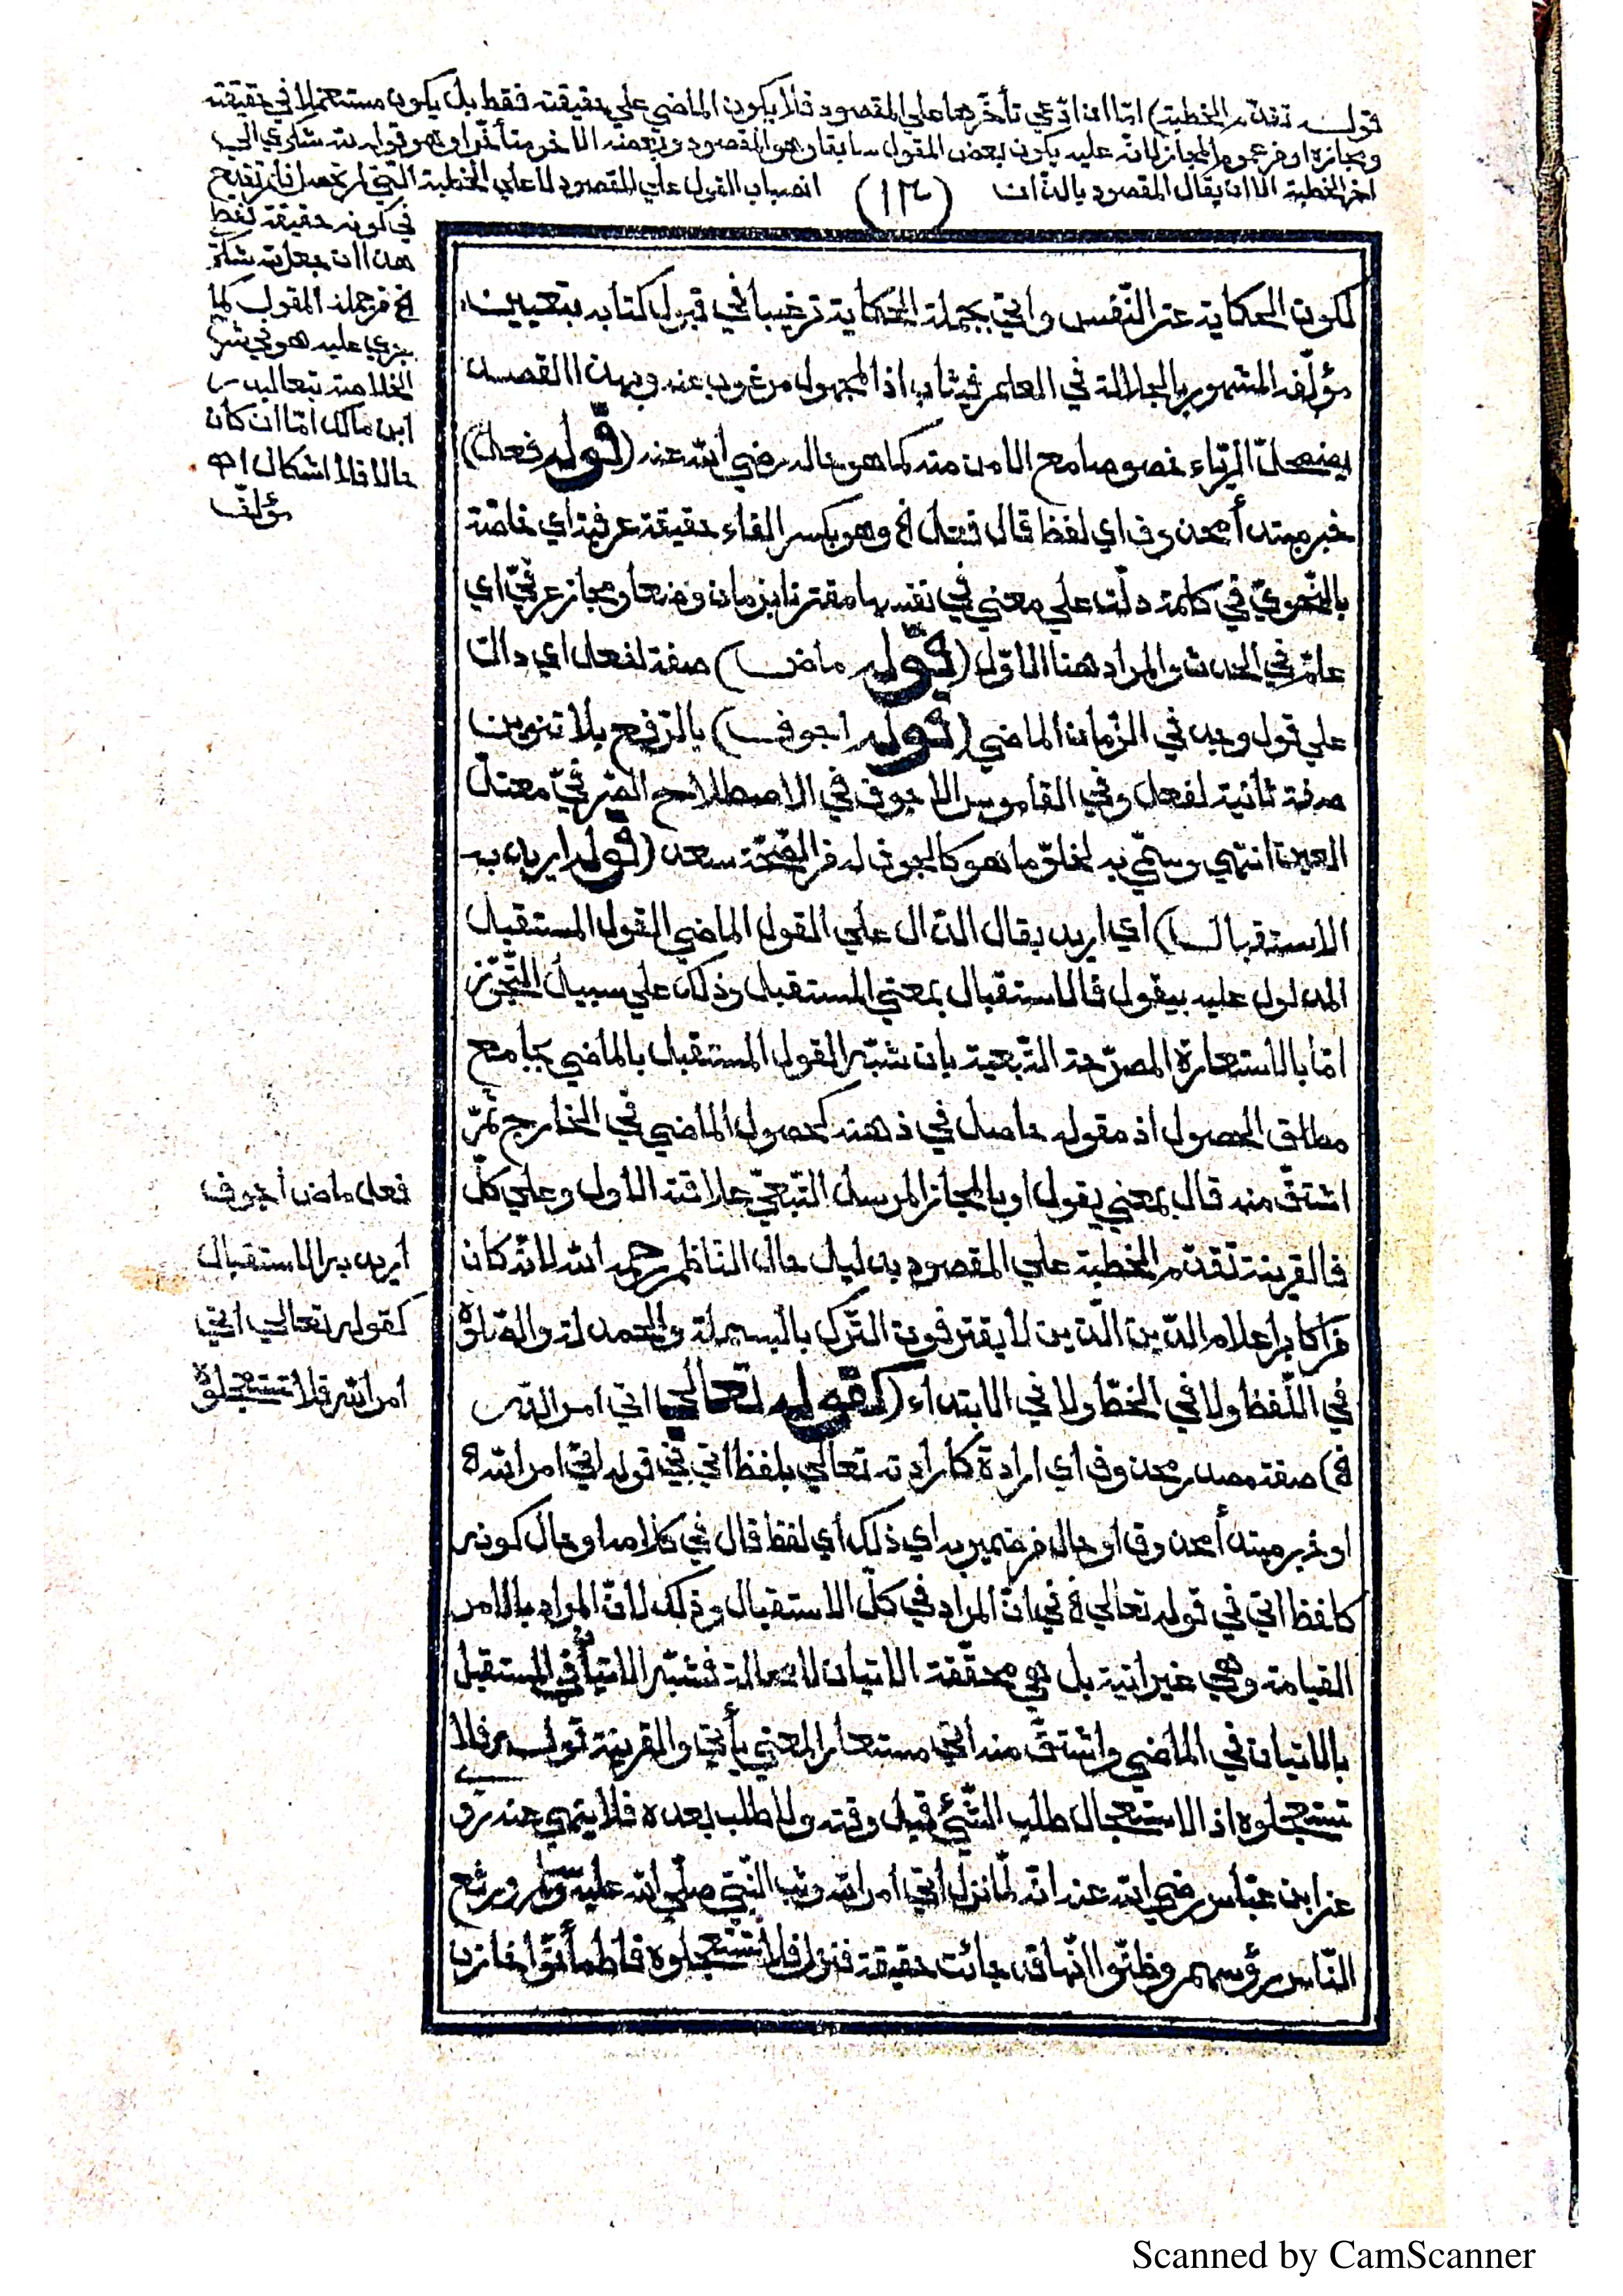 قوله تقدم الخطبة) امّا ان ادّعي تأخّرها علي المقصود فلا يكون الماضي علي حقيقته فقط بل يكون مستعملا في حقيقته
ومجازه او من عموم المجاز لانّه عليه يكون بعض المقول سابقا وهو المقصود وبعضه الاخر متأخّرا وهو قوله لله شكري الي
اخر الخطبة الا ان يقال المقصود بالذات
(١٣)
انصباب القول علي المقصود لا علي الخطبة الّتي لم تحصل فلم تقدح
في كونه حقيقة فقط
هذا ان جعل لله شكر
الخ من جملة المقول كما
جري عليه هو في شرح
الخلاصة تبعا لبدر
ابن مالك امّا ان كان
حالا فلا اشكال اهـ
مؤلّف
لكون الحكاية عن النّفس واتي بجملة الحكاية ترغيبا في قبول كتابه بتعيين
مؤلّفه المشهور بالجلالة في العلم فيثاب اذ المجهول مرغوب عنه وبهذا القصد
يضمحلّ الرّياء خصوصا مع الامن منه كما هو حاله رضي الله عنه (قوله فعل)
خبر مبتدأ محذوف اي لفظ قال فعل الخ وهو بكسر الفاء حقيقة عرفية اي خاصّة
بالنّحويّ في كلمة دلّت علي معني في نفسها مقترنا بزمان وضعا ومجاز عرفيّ اي
عامّ في الحدث والمراد هنا الاوّل (قوله ماض) صفة لفعل اي دالّ
علي قول وجد في الزّمان الماضي (قوله اجوف) بالرّفع بلا تنوين
صفة ثانية لفعل وفي القاموس الاجوف في الاصطلاح الصّرفيّ معتلّ
العين انتهي وسمّي به لخلوّ ما هو كالجوف له من الصّحّة سعد (قوله اريد به
الاستقبال) اي اريد بقال الدّال علي القول الماضي القول المستقبل
المدلول عليه بيقول فالاستقبال بمعني المستقبل وذلك علي سبيل التّجوّز
امّا بالاستعارة المصرّحة التّبعية بان شبّه القول المستقبل بالماضي بجامع
مطلق الحصول اذ مقوله حاصل في ذهنه كحصول الماضي في الخارج ثمّ
اشتقّ منه قال بمعني يقول او بالمجاز المرسل التّبعيّ علاقته الاول وعلي كلّ
فالقرينة تقدّم الخطبة علي المقصود بدليل حال النّاظم رحمه الله لانّه كان
من اكابر اعلام الدّين الّذين لا يقترفون التّرك بالبسملة والحمدلة والصّلاة
في اللّفظ ولا في الخطّ ولا في الابتداء (كقوله تعالي اتي امر الله
الخ) صفة مصدر محذوف اي ارادة كارادته تعالي بلفظ اتي في قوله اتي امر الله الخ
او خبر مبتدأ محذوف او حال من ضمير به اي ذلك اي لفظ قال في كلامه او حال كونه
كلفظ اتي في قوله تعالي الخ في انّ المراد في كلّ الاستقبال وذلك لانّ المراد بالامر
القيامة وهي غير اتية بل هي محقّقة الاتيان لا محالة فشبّه الاتيان في المستقبل
بالاتيان في الماضي واشتقّ منه اتي مستعارا لمعني يأتي والقرينة قوله فلا
تستعجلوه اذ الاستعجال طلب الشّيء قبل وقته ولا طلب بعده فلا ينهي عنه روي
عن ابن عبّاس رضي الله عنه انّه لمّا نزل اتي امر الله وثب النّبيّ صلّي الله عليه وسلّم ورفع
النّاس رؤسهم وظنّوا انّها قد جائت حقيقة فنزل فلا تستعجلوه فاطمأنّوا خازن
فعل ماض أجوف
أريد به الاستقبال
كقوله تعالي أتي
امر الله فلا تستعجلوه
Scanned by CamScanner